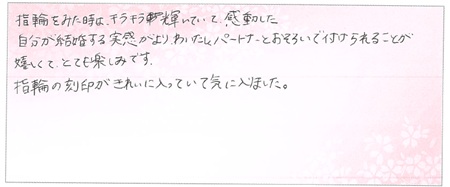 指輪をみた時は、キラキラ輝いていて、感動した
自分が結婚する実感がより、わいたし、パートナーとおそろいで付けられることが
嬉しくて、とても楽しみです。
指輪の刻印がきれいに入っていて気に入ました。